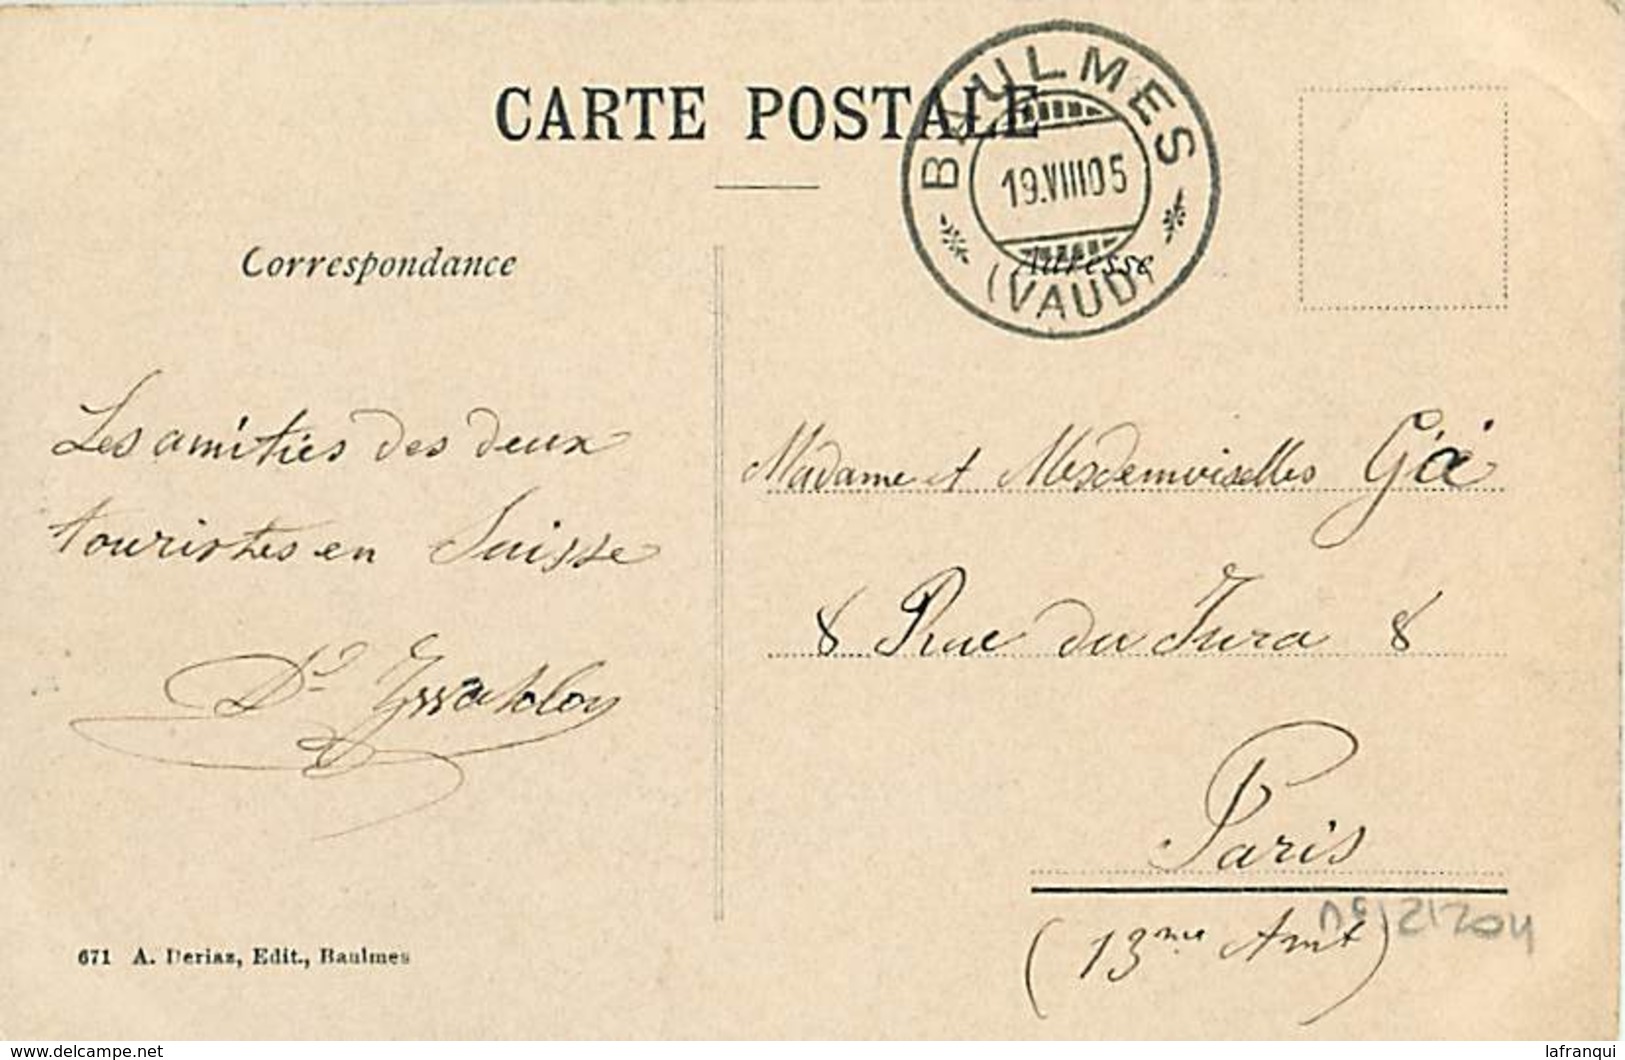 CARTE POSTALE
BAULMES
19.VIII05
(VAUD)
Correspondance
Adresse
Les amitiés des deux
touristes en Suisse
Madame et Mesdemoiselles
8 Rue du Jura 8
Paris
(13me Arrt)
671 A. Deriaz, Edit., Baulmes
delcampe.net
lafranqui